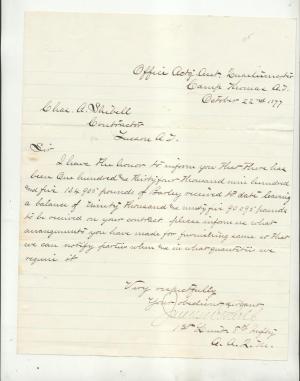 Office Actg Asst. Quartermaster
Camp Thomas A.T.
October 22nd 1877
Chas. A. Shibell
Contractor
Tucson A.T.
Sir
I have the honor to inform you that there has
been One hundred & thirty four thousand nine hundred
and five 134,905 pounds of Barley received to date leaving
a balance of Ninety thousand & ninety five 90,095 pounds
to be received on your contract. please inform me what
arrangements you have made for furnishing same so that
we can notify parties when & in what quantities we
require it
Very respectfully
Your obedient servant
1st Lieut 8th Infty
A.A.Q.M.